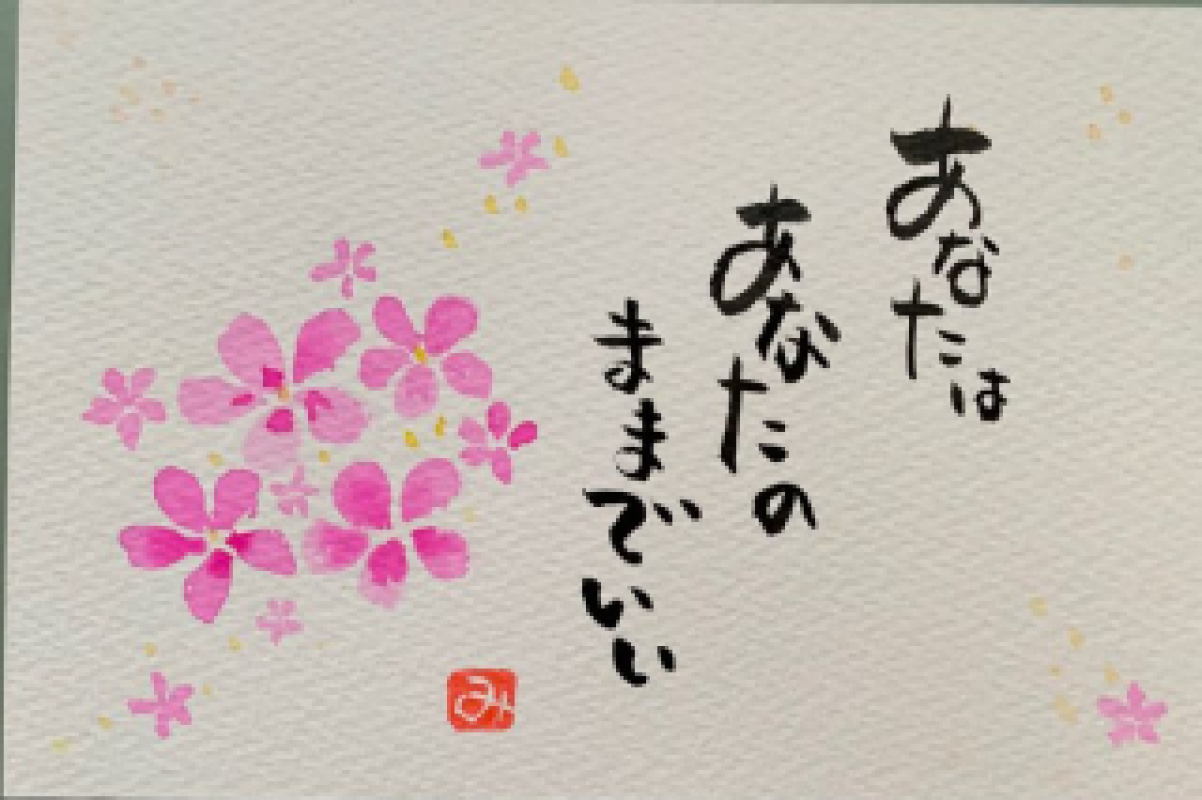 あなたは
あなたの
ままでいい
み